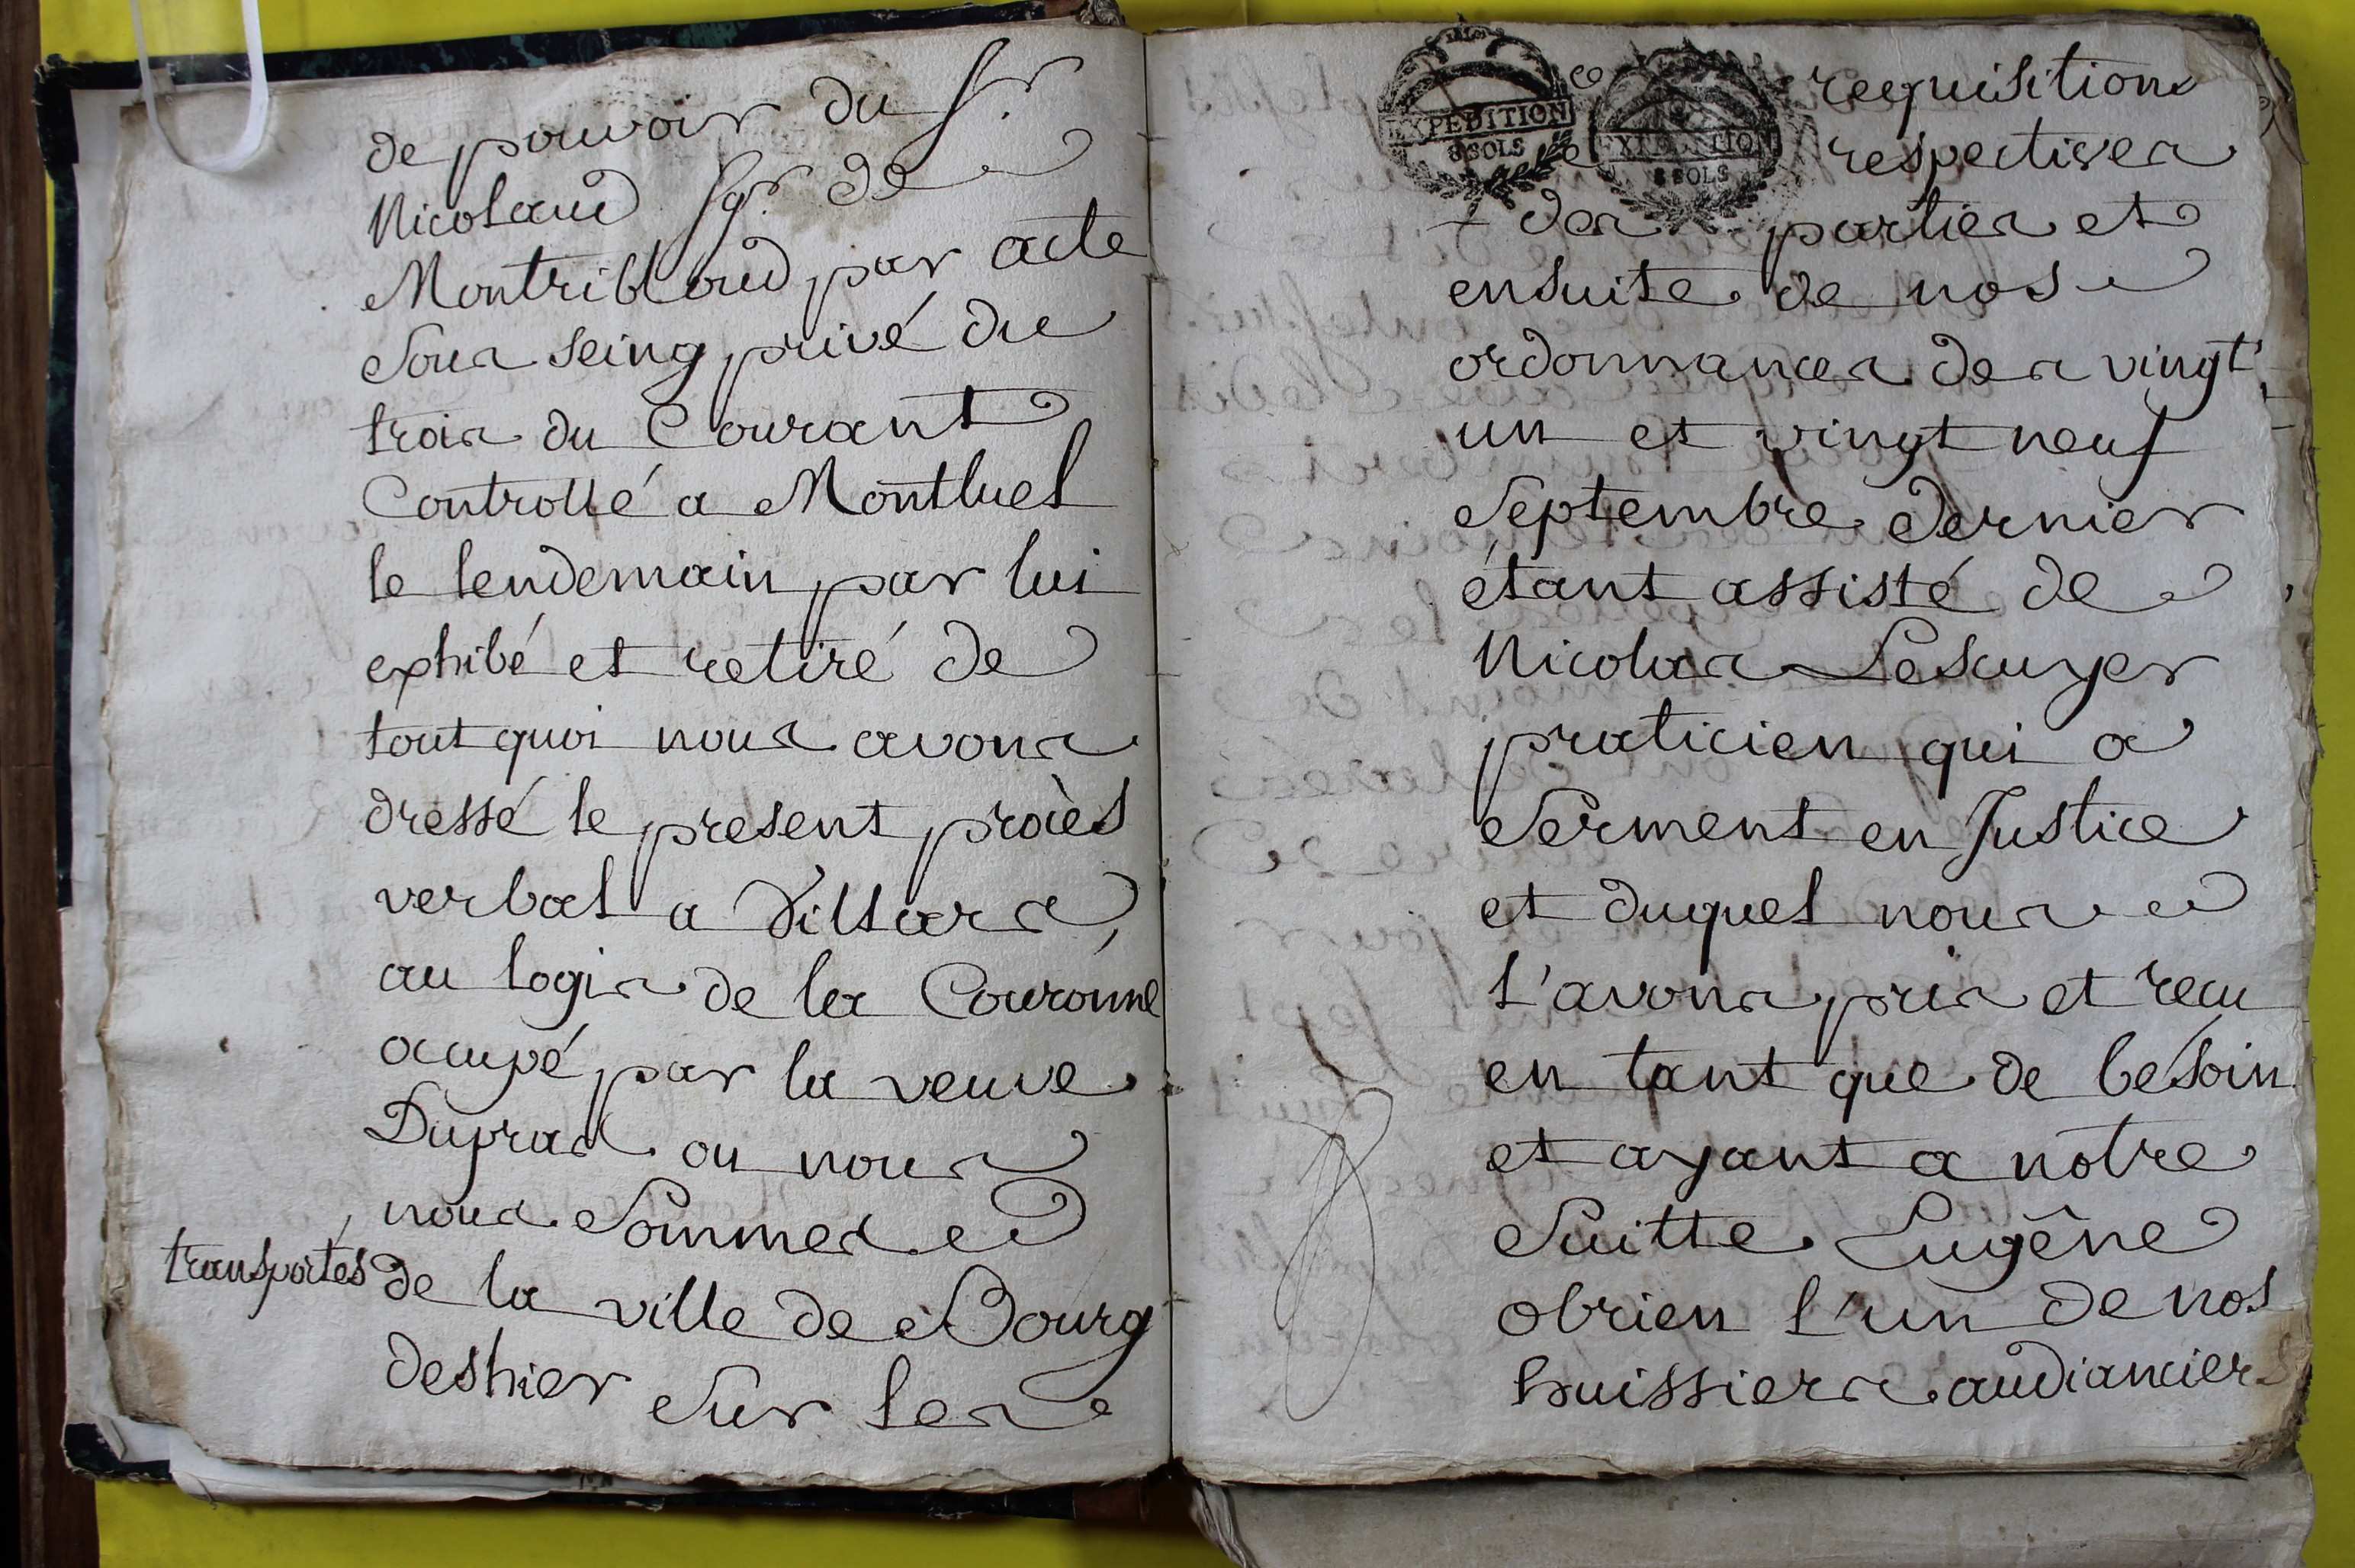 de pouvoir du Sr
Nicolaud Sgr de
Montribloud par acte
sous seing privé du
trois du Courant
Controllé a Montluel
le lendemain par lui
exhibé et retiré de
tout quoi nous avons
dressé le present procès
verbal a Villars,
au logis de la Couronne
occupé par la veuve
Duprad ou nous
nous sommes
transportés de la ville de Bourg
deshier sur les
EXPEDITION
8 SOLS
EXPEDITION
8 SOLS
requisitions
respectives
des parties et
ensuite de nos
ordonnances des vingt
un et vingt neuf
Septembre dernier
étant assisté de
Nicolas Lescuyer
praticien qui a
serment en Justice
et duquel nous
l'avons pris et recu
en tant que de besoin
et ayant a notre
Suitte Eugêne
obrien l'un de nos
huissiers audianciers